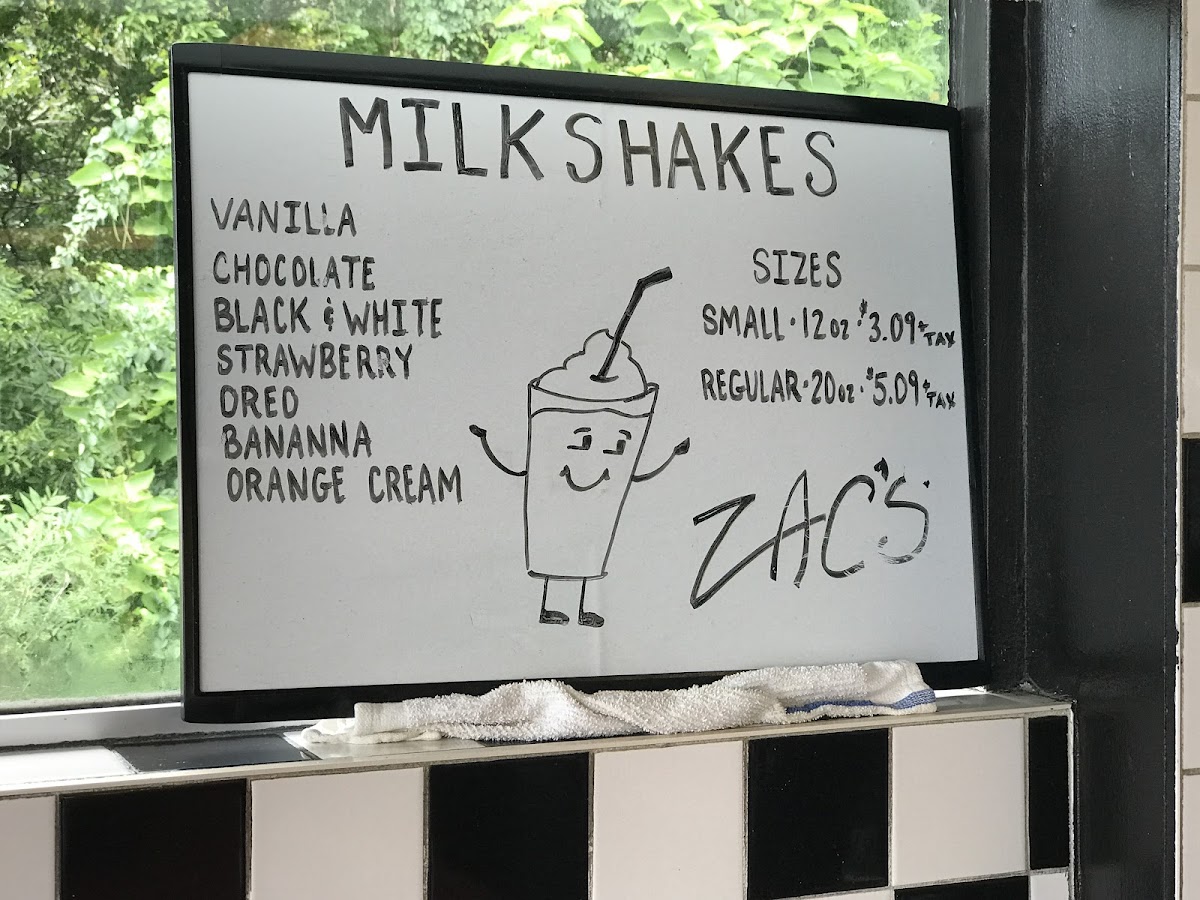 MILKSHAKES
VANILLA
CHOCOLATE
BLACK & WHITE
STRAWBERRY
OREO
BANANNA
ORANGE CREAM
SIZES
SMALL · 12oz · $3.09 + TAX
REGULAR · 20oz · $5.09 + TAX
ZAC'S